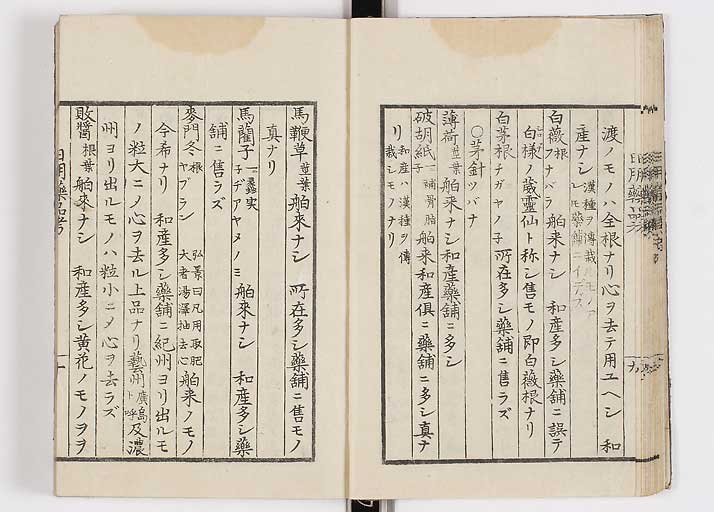 渡ノモノハ全根ナリ心ヲ去テ用ユヘシ 和
産ナシ 漢種ヲ傳栽
レモ藥舗ニイデス
白薇 根 フナバラ 舶來ナシ 和產多シ藥舗ニ誤テ
白様ノ葳靈仙ト称シ售モノ即白薇根ナリ
白茅根 チガヤノ子 所在多シ藥舗ニ售ラズ
〇茅針 ツバナ
薄荷 莖葉 舶來ナシ和産藥舗ニ多シ
破胡紙 子 一補骨脂 舶来和産俱ニ藥舗ニ多シ真ナ
リ 和産ハ漢種ヲ傳
栽シモノナリ
日用藥品考
九
馬鞭草 莖葉 舶來ナシ 所在多シ藥舗ニ售モノ
真ナリ
馬藺子 一蠡実
子デアヤメノミ 舶來ナシ 和産多シ藥
舗ニ售ラズ
麥門冬 根 ヤブラン 弘景曰凡用取肥
大者湯澤抽去心 舶來ノモノ
今希ナリ 和産多シ藥舗ニ紀州ヨリ出ルモ
ノ粒大ニノ心ヲ去ル上品ナリ藝州 廣島
ト呼 及濃
州ヨリ出ルモノハ粒小ニメ心ヲ去ラズ
敗醬 根葉 舶來ナシ 和産多シ黄花ノモノヲヲ
日用藥品考
十